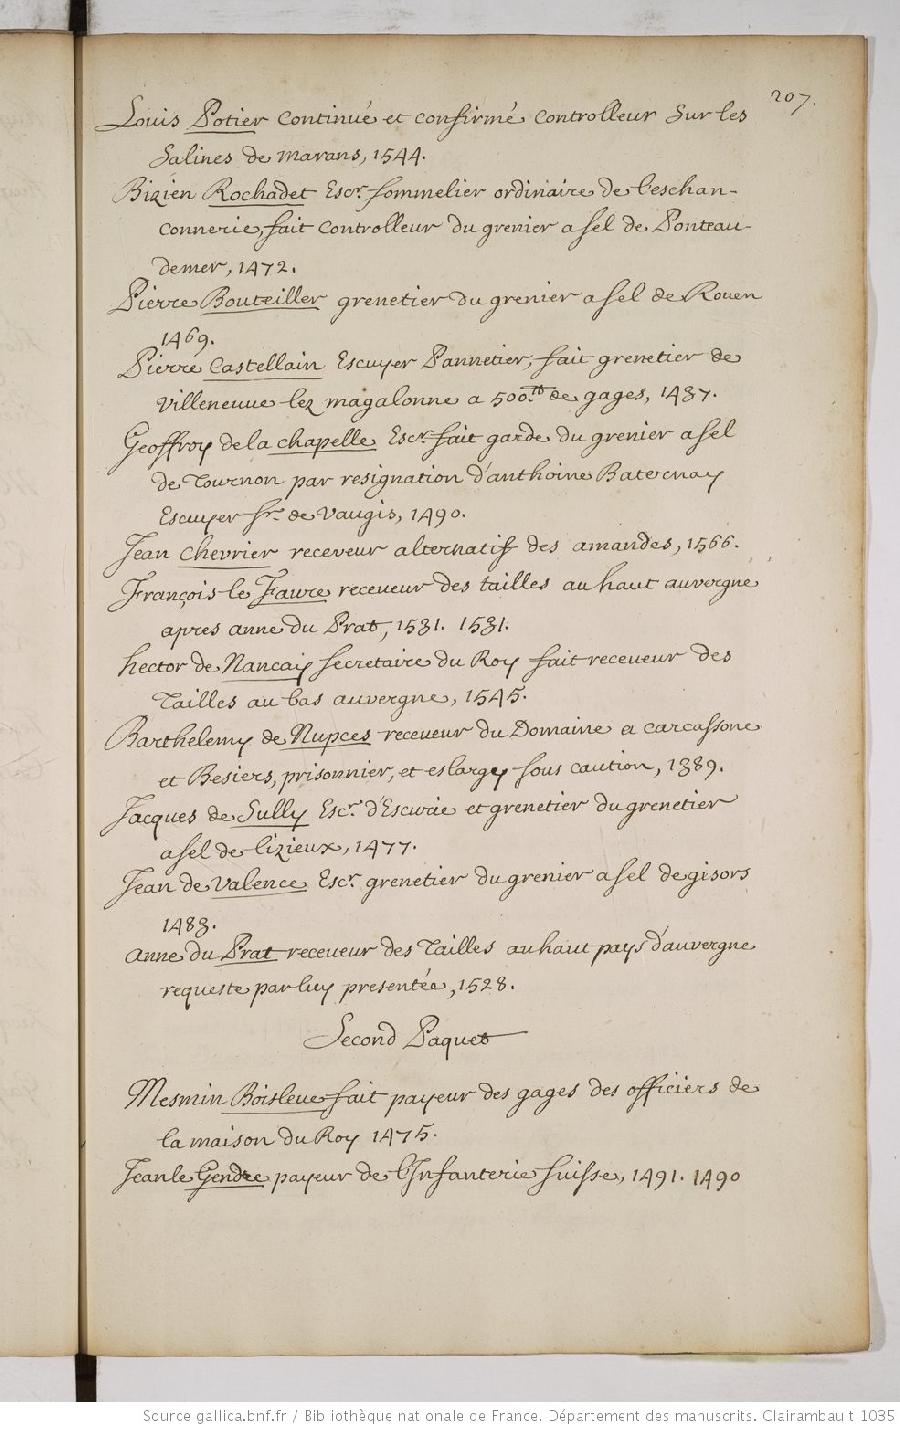 207.
Louis Potier continué et confirmé controlleur sur les
Salines de marans, 1544.
Bizien Rochadet Escr. sommelier ordinaire de leschan-
connerie, fait controlleur du grenier a sel de Ponteau-
demer, 1472.
Pierre Bouteiller grenetier du grenier a sel de Rouen
1469.
Pierre Castellain Escuyer Pannetier, fait grenetier de
Villeneuve lez magalonne a 500.lt de gages, 1487.
Geoffroy de la chapelle Escr. fait garde du grenier a sel
de Tournon par resignation d'anthoine Baternay
Escuyer sr. de Vaugis, 1490.
Jean Chevrier receveur alternatif des amandes, 1566.
François le Favre receveur des tailles au haut auvergne
apres anne du Prat, 1531. 1531.
hector de Nancay secretaire du Roy fait receveur des
Tailles au bas auvergne, 1545.
Barthelemy de Nupces receveur du Domaine a carcassone
et Besiers, prisonnier, et eslargy sous caution, 1389.
Jacques de Sully Escr. d'Escurie et grenetier du grenetier
a sel de lizieux, 1477.
Jean de Valence Escr. grenetier du grenier a sel de gisors
1483.
anne du Prat receveur des Tailles au haut pays d'auvergne
requeste par luy presentée, 1528.
Second Paquet
Mesmin Boisleve fait payeur des gages des officiers de
la maison du Roy 1475.
Jean le Gendre payeur de l'Infanterie suisse, 1491. 1490
Source gallica.bnf.fr / Bibliothèque nationale de France. Département des manuscrits. Clairambault 1035